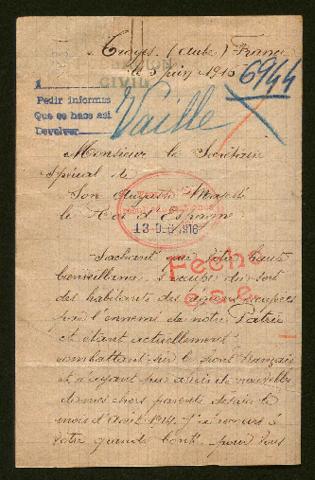 Troyes (Aube) France
le 5 juin 1916
6944
CIVIL
Pedir informes
Que se hace así
Devolver
Vaille
Monsieur le Secrétaire
Spécial de
Son Auguste Majesté
le Roi d'Espagne
13 1916
Fecho
Sachant que votre haute
bienveillance s'occupe du sort
des habitants des régions occupées
par l'ennemi de notre Patrie
et étant actuellement
combattant sur le front français
et n'ayant pu avoir de nouvelles
de mes chers parents depuis le
mois d'Août 1914. J'ai recours à
votre grande bonté pour vous